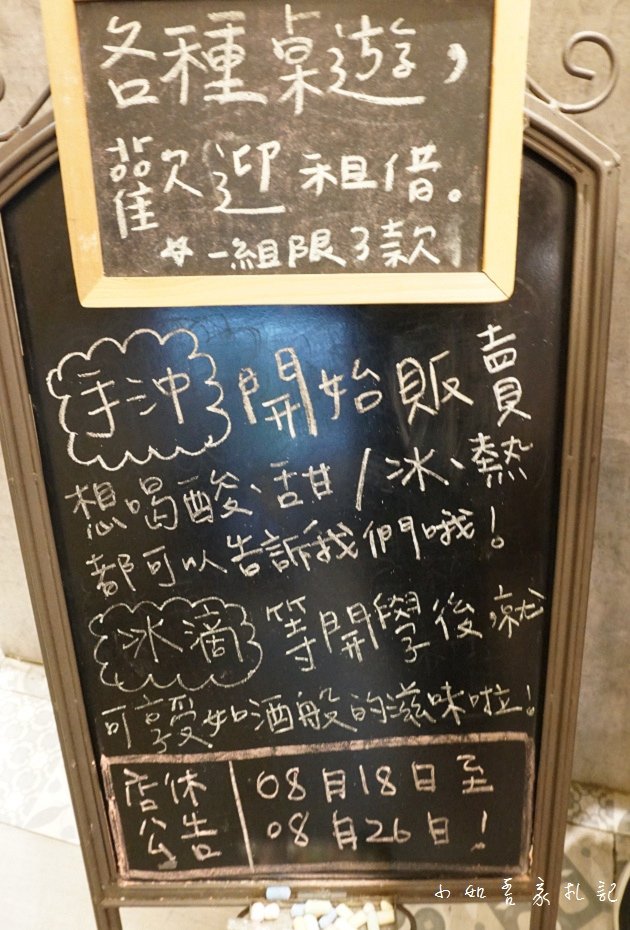 各種桌遊，
歡迎租借。
*一組限3款
手沖 開始販賣
想喝酸、甜/冰、熱
都可以告訴我們哦！
冰滴 等開學後，就
可享受如酒般的滋味啦！
店休公告
08月18日至
08月26日！
小如吾家札記